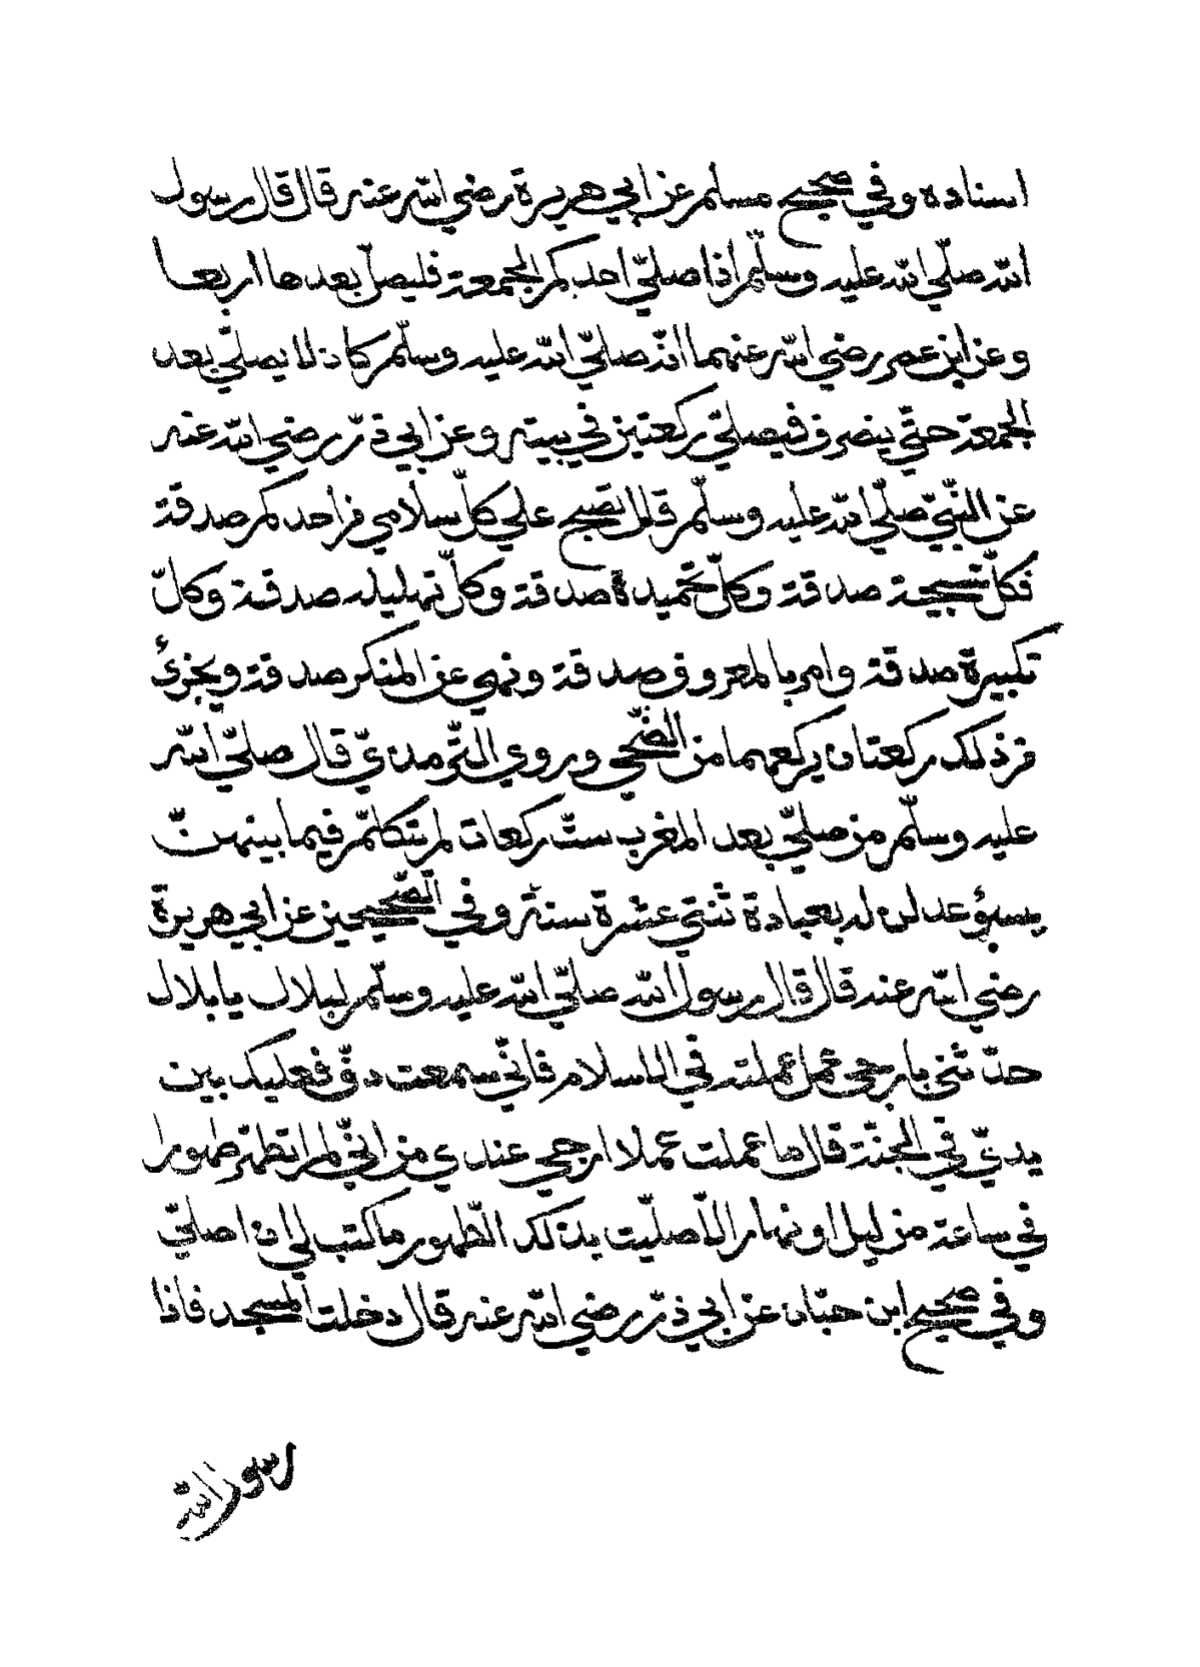 اسناده وفي صحيح مسلم عن ابي هريرة رضي الله عنه قال قال رسول
الله صلّي الله عليه وسلّم اذا صلّي احدكم الجمعة فليصلّ بعدها اربعا
وعن ابن عمر رضي الله عنهما انّه صلّي الله عليه وسلّم كان لا يصلّي بعد
الجمعة حتّي ينصرف فيصلّي ركعتين في بيته وعن ابي ذرّ رضي الله عنه
عن النّبيّ صلّي الله عليه وسلّم قال يصبح علي كلّ سلامي من احدكم صدقة
فكلّ تسبيحة صدقة وكلّ تحميدة صدقة وكلّ تهليله صدقة وكلّ
تكبيرة صدقة وامر بالمعروف صدقة ونهي عن المنكر صدقة ويجزئ
من ذلك ركعتان يركعهما من الضّحي وروي التّرمذيّ قال صلّي الله
عليه وسلّم من صلّي بعد المغرب ستّ ركعات لم يتكلّم فيما بينهنّ
بسوء عدلن له بعبادة ثنتي عشرة سنة وفي الصّحيحين عن ابي هريرة
رضي الله عنه قال قال رسول الله صلّي الله عليه وسلّم لبلال يا بلال
حدّثني بارجي عمل عملته في الاسلام فانّي سمعت دفّ نعليك بين
يديّ في الجنّة قال ما عملت عملا ارجي عندي من انّي لم اتطهّر طهورا
في ساعة من ليل او نهار الّا صلّيت بذلك الطّهور ما كتب لي ان اصلّي
وفي صحيح ابن حبّان عن ابي ذرّ رضي الله عنه قال دخلت المسجد فاذا
رسول الله